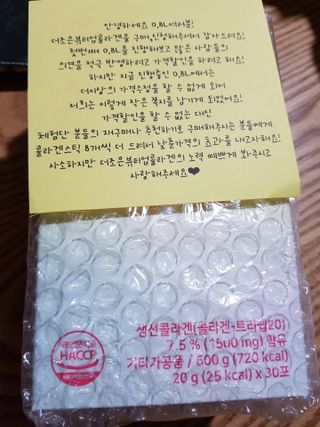 안녕하세요 0,8L여러분!
더조은뷰티업콜라겐을 구매,진행해주셔서 감사드려요!
첫번째 0,8L를 진행해보고 많은 사람들의
의견을 적극 반영하려고 가격할인을 하려고 해요!
하지만! 지금 진행중인 0,8L에서는
더이상의 가격수정을 할 수 없게 되어
저희는 이렇게 작은 쪽지를 남기게 되었어요!
가격할인을 할 수 없는 대신
체험단 분들의 재구매나 추천하기로 구매해주시는 분들에게
콜라겐스틱 8개씩 더 드려서 낮춘가격의 효과를 내고자해요!
사소하지만 더조은뷰티업콜라겐의 노력 예쁘게 봐주시고
사랑해주세요♥
생선콜라겐(콜라겐-트리펩20)
7.5 % (1500 mg) 함유
기타가공품 / 600 g (720 kcal)
20 g (25 kcal) x 30포
HACCP